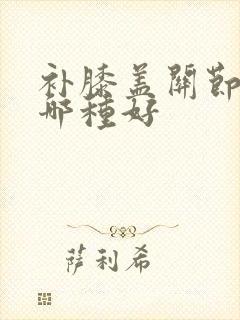 补膝盖關節
哪種好
萨利希